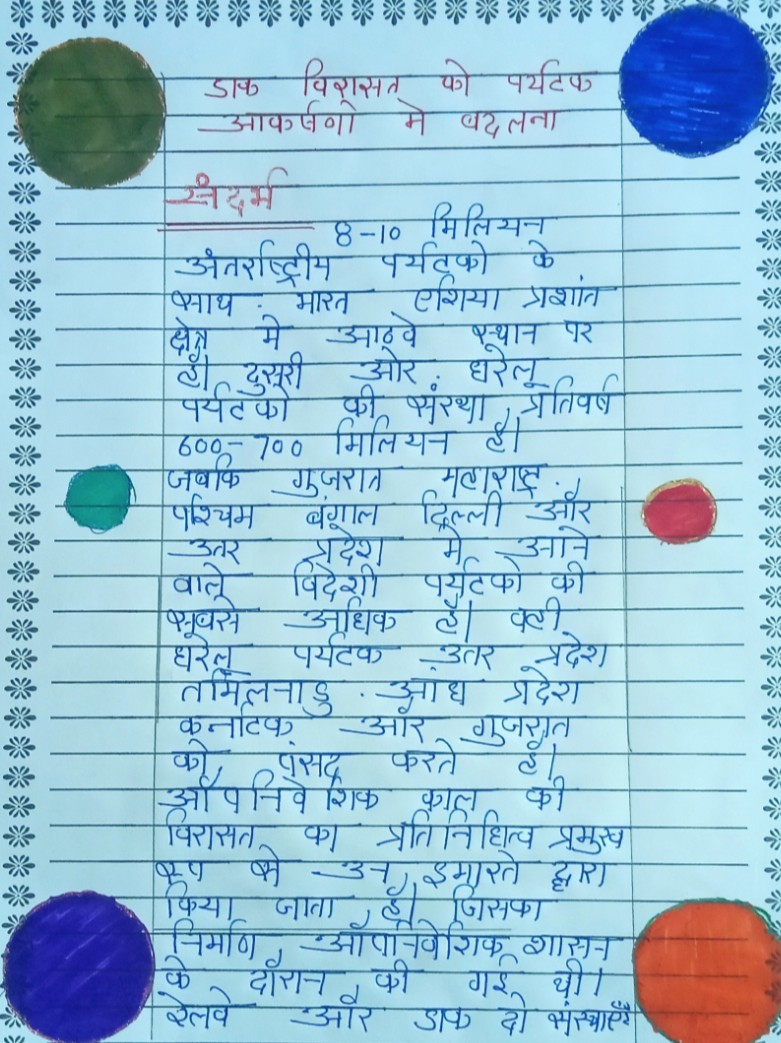 डाक विरासत को पर्यटक
आकर्षणों मे बदलना
संदर्भ
8-10 मिलियन
अंतर्राष्ट्रीय पर्यटको के
साथ . भारत एशिया प्रशांत
क्षेत्र मे आठवे स्थान पर
है। दुसरी ओर . घरेलू
पर्यटको की संख्या प्रतिवर्ष
600-700 मिलियन है।
जबकि गुजरात महाराष्ट्र .
पश्चिम बंगाल दिल्ली और
उतर प्रदेश मे आने
वाले विदेशी पर्यटको की
सबसे अधिक है। वही
घरेलू पर्यटक उतर प्रदेश
तमिलनाडु . आंध प्रदेश
कर्नाटक और गुजरात
को पंसद करते है।
औपनिवेशिक काल की
विरासत का प्रतिनिधित्व प्रमुख
रूप से उन इमारते द्वारा
किया जाता है। जिसका
निर्माण औपनिवेशिक शासन
के दौरान की गई थी।
रेलवे और डाक दो संस्थाएँ